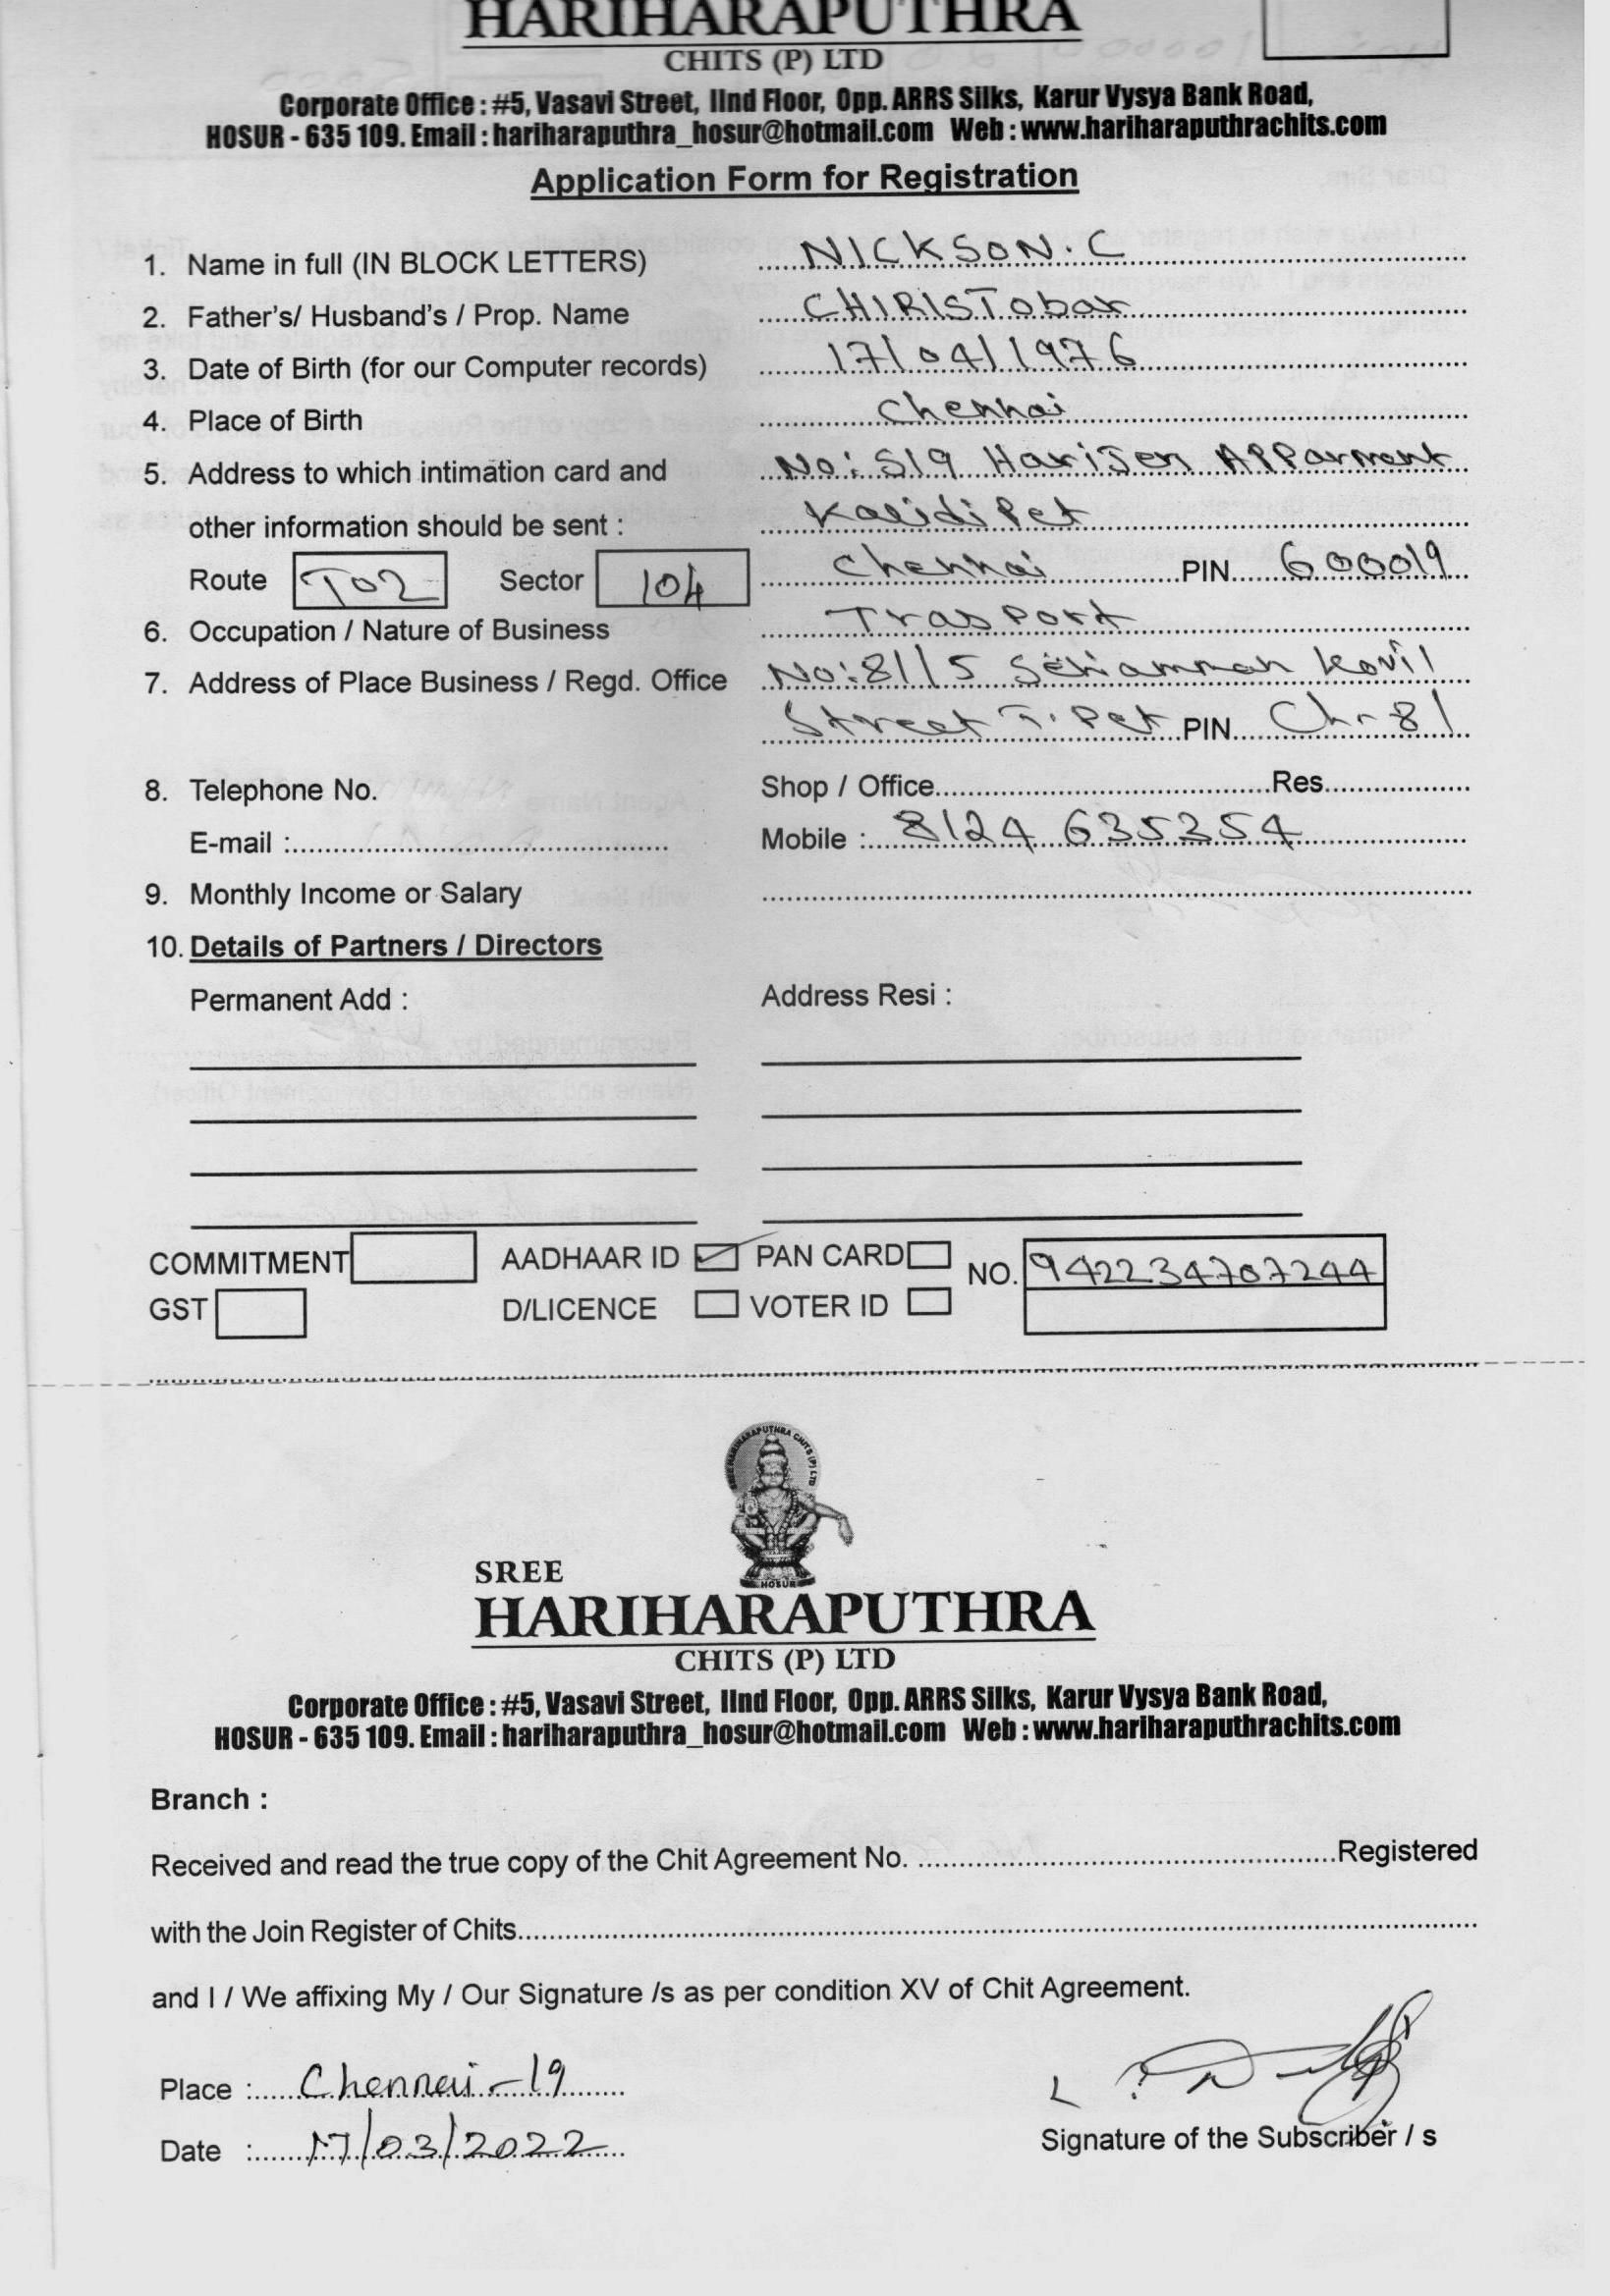 HARIHARAPUTHRA
CHITS (P) LTD
Corporate Office : #5, Vasavi Street, IInd Floor, Opp. ARRS Silks, Karur Vysya Bank Road,
HOSUR - 635 109. Email : hariharaputhra_hosur@hotmail.com Web : www.hariharaputhrachits.com
Application Form for Registration
1. Name in full (IN BLOCK LETTERS) NICKSON. C
2. Father's/ Husband's / Prop. Name CHIRISTobar
3. Date of Birth (for our Computer records) 17/04/1976
4. Place of Birth Chennai
5. Address to which intimation card and No: S19 HariJen APParment
other information should be sent : Kalidi Pet
Route T02 Sector 104 Chennai PIN 600019
6. Occupation / Nature of Business Trasport
7. Address of Place Business / Regd. Office No: 81/5 Seniamman Kovil
Street T. Pet PIN Ch-81
8. Telephone No. Shop / Office Res
E-mail : Mobile : 8124 635354
9. Monthly Income or Salary
10. Details of Partners / Directors
Permanent Add : Address Resi :
COMMITMENT AADHAAR ID PAN CARD NO. 942234707244
GST D/LICENCE VOTER ID
SREE HARIHARAPUTHRA CHITS (P) LTD
HOSUR
SREE
HARIHARAPUTHRA
CHITS (P) LTD
Corporate Office : #5, Vasavi Street, IInd Floor, Opp. ARRS Silks, Karur Vysya Bank Road,
HOSUR - 635 109. Email : hariharaputhra_hosur@hotmail.com Web : www.hariharaputhrachits.com
Branch :
Received and read the true copy of the Chit Agreement No. Registered
with the Join Register of Chits
and I / We affixing My / Our Signature /s as per condition XV of Chit Agreement.
Place : Chennai-19
Date : 17/03/2022
Signature of the Subscriber / s